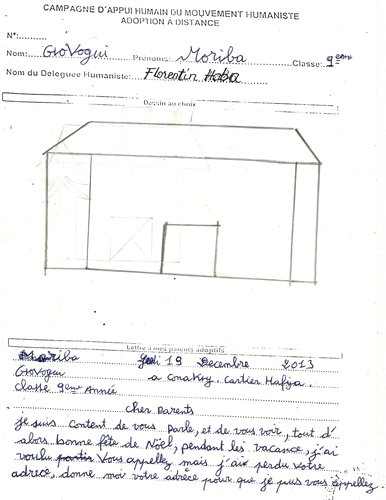 CAMPAGNE D'APPUI HUMAIN DU MOUVEMENT HUMANISTE
ADOPTION À DISTANCE
N°:
Nom: GroVogui Prénoms: Moriba Classe: 9ème
Nom du Déléguée Humaniste: Florentin Haba
Dessin au choix
Lettre à mes parents adoptifs
Moriba Jedi 19 Decembre 2013
GroVogui a Conakry. Cartier Hafiya.
Classe 9ème Année
Cher Parents
je suis content de vous parle, et de vous voir, tout d'
abors bonne fête de Noël, pendant les vacance, j'ai
voulu partir Vous appellez mais j'ai perdu Votre
adrece, donne moi votre adrèce pour que je puis vous appellez